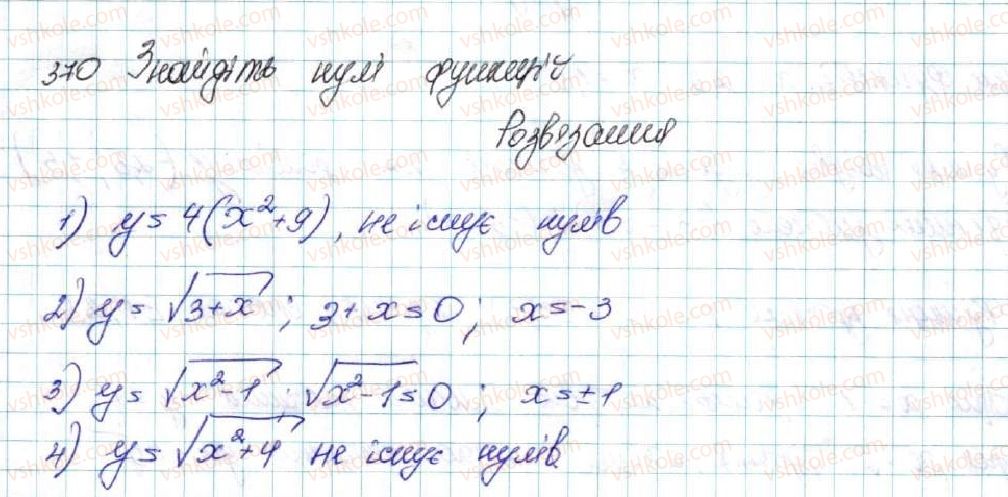 370 Знайдіть нулі функції
Розвязання
1) y = 4(x²+9), не існує нулів
2) y = √3+x ; 3+x=0; x=-3
3) y = √x²-1 ; √x²-1=0 ; x=±1
4) y = √x²+4 не існує нулів